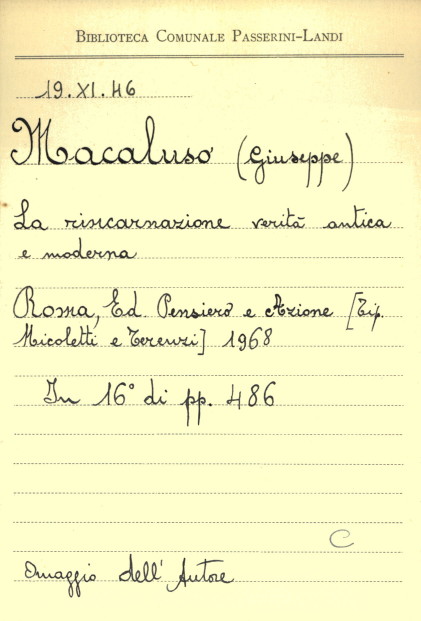 BIBLIOTECA COMUNALE PASSERINI-LANDI
19.XI.46
Macaluso (Giuseppe)
La rincarnazione verità antica
e moderna
Roma, Ed. Pensiero e Azione [Tip.
Nicoletti e Terenzi] 1968
In 16° di pp. 486
C
Omaggio dell'Autore